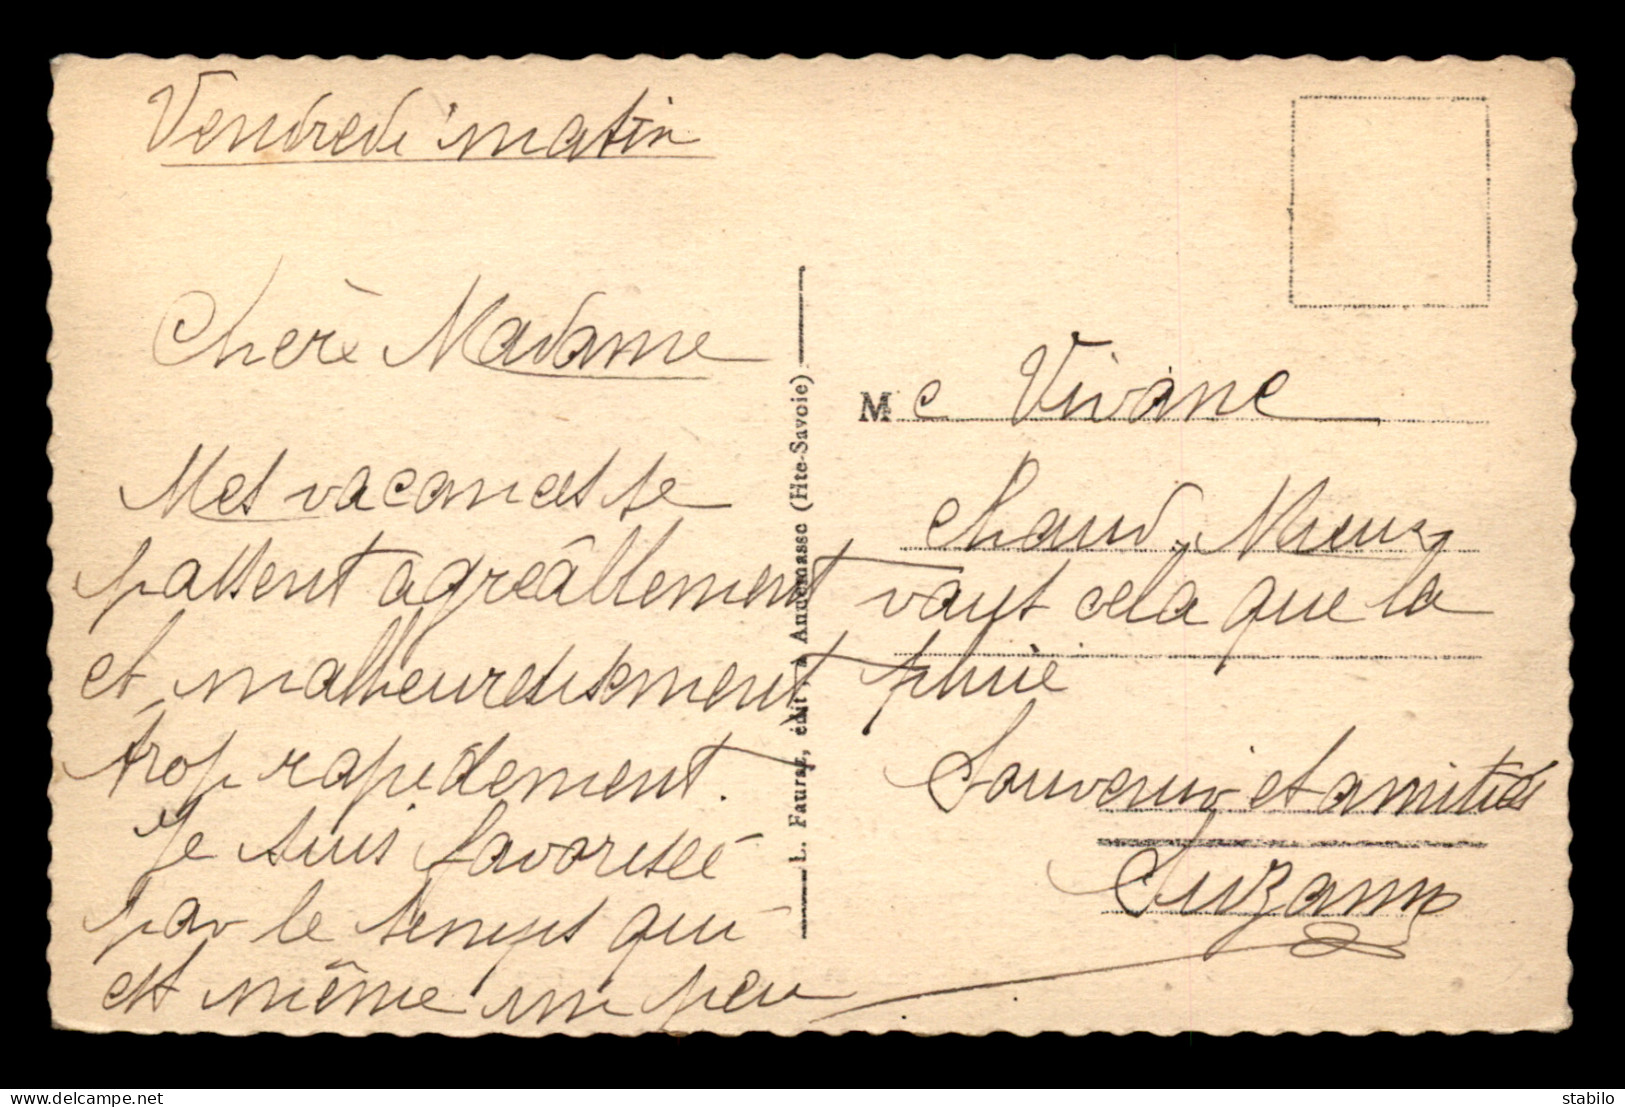 Vendredi matin
Chère Madame
Mes vacances se
passent agréablement
et malheureusement
trop rapidement.
Je suis favorisée
par le temps qui
est même un peu
L. Fauraz, édit., Annemasse (Hte-Savoie)
Me Viviane
chaud. Mieux
vaut cela que la
pluie
Souvenir et amitiés
Suzanne
delcampe.net
stabilo